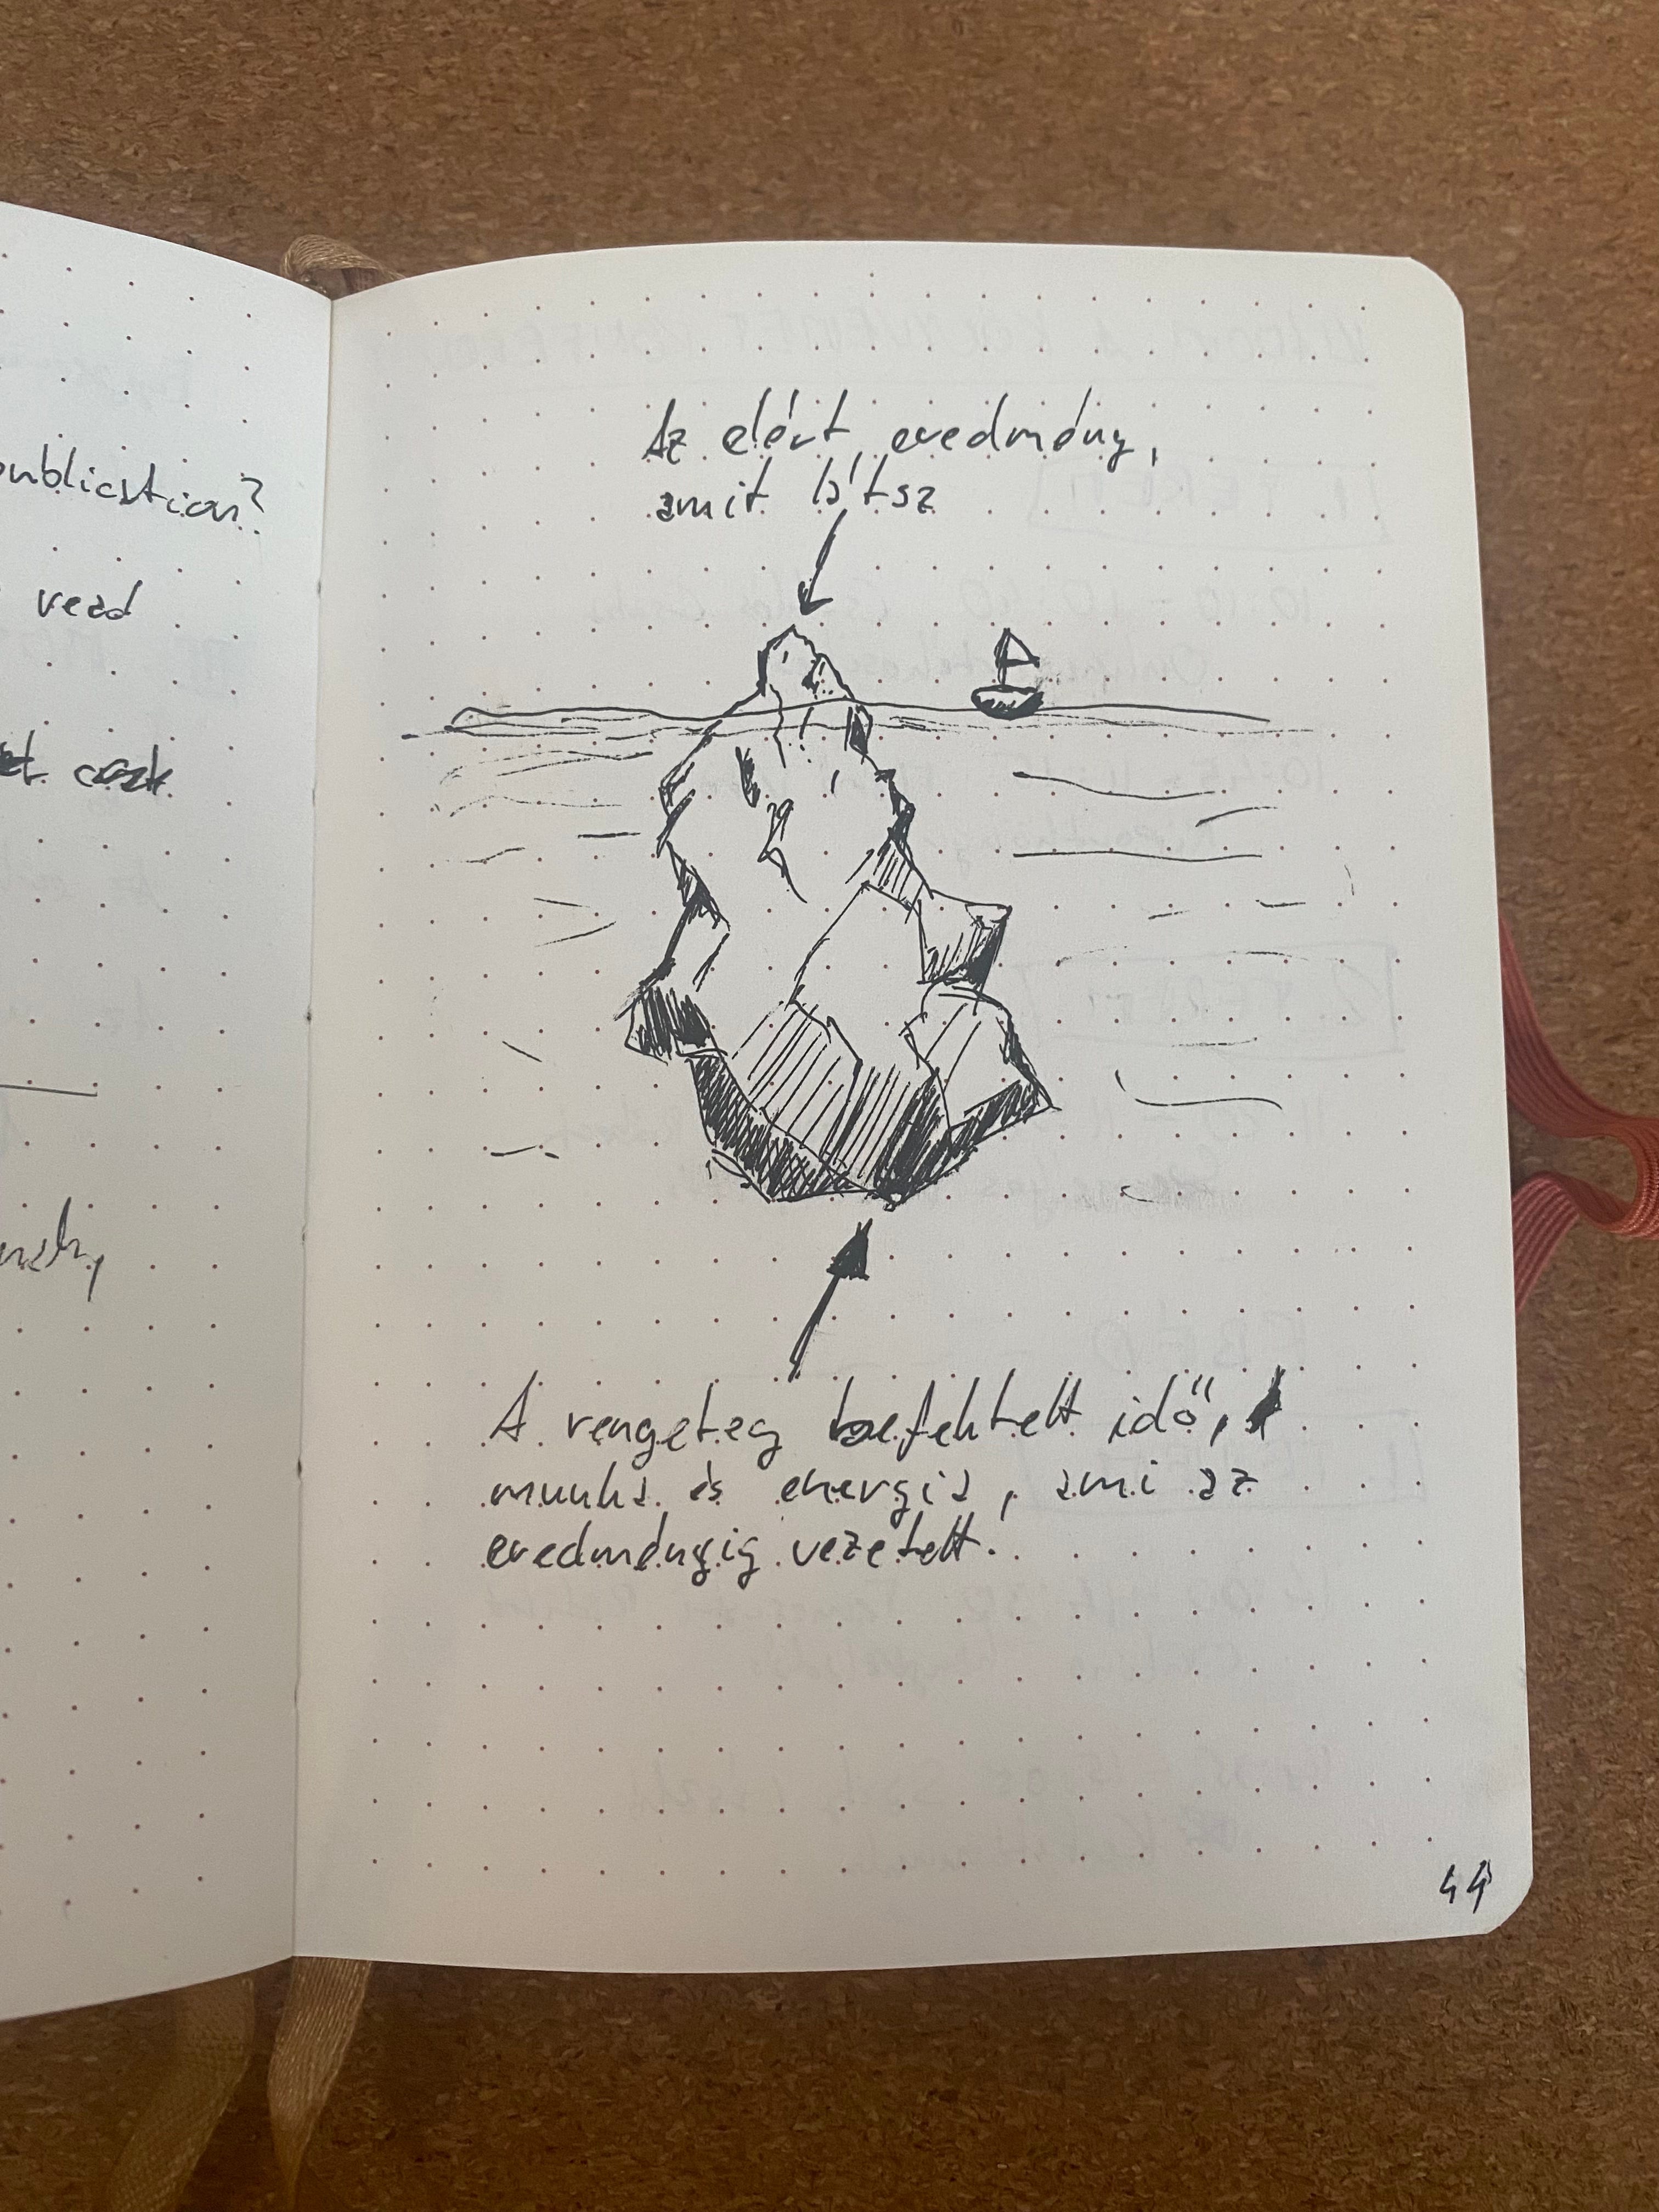 publication?
read
Az elért eredmény,
amit látsz
A rengeteg befektetett idő,
munka és energia, ami az
eredményig vezetett.
44